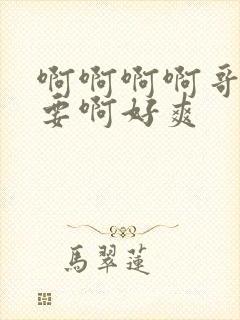 啊啊啊啊哥
要啊好爽
馬翠蓮